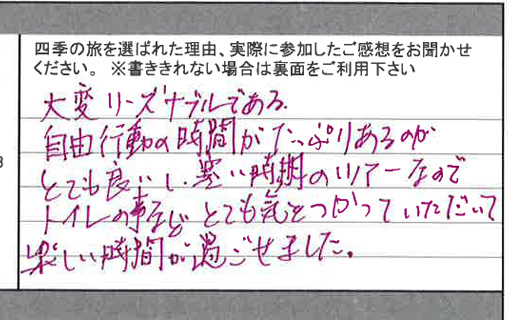 四季の旅を選ばれた理由、実際に参加したご感想をお聞かせ
ください。 ※書ききれない場合は裏面をご利用下さい
大変リーズナブルである.
自由行動の時間がたっぷりあるのが
とても良いし、寒い時期のツアーなので
トイレの事など とても気をつかっていただいて
楽しい時間が過ごせました。